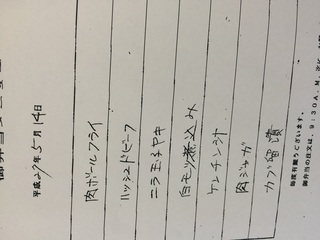 御弁当メニュー
平成27年5月14日
肉ボールフライ
ハッシュドビーフ
ニラ玉子ヤキ
白モツ煮込み
ケンチン汁
肉ジャガ
カブ留漬
毎度有難うございます。
御弁当の注文は、9:30A.M.